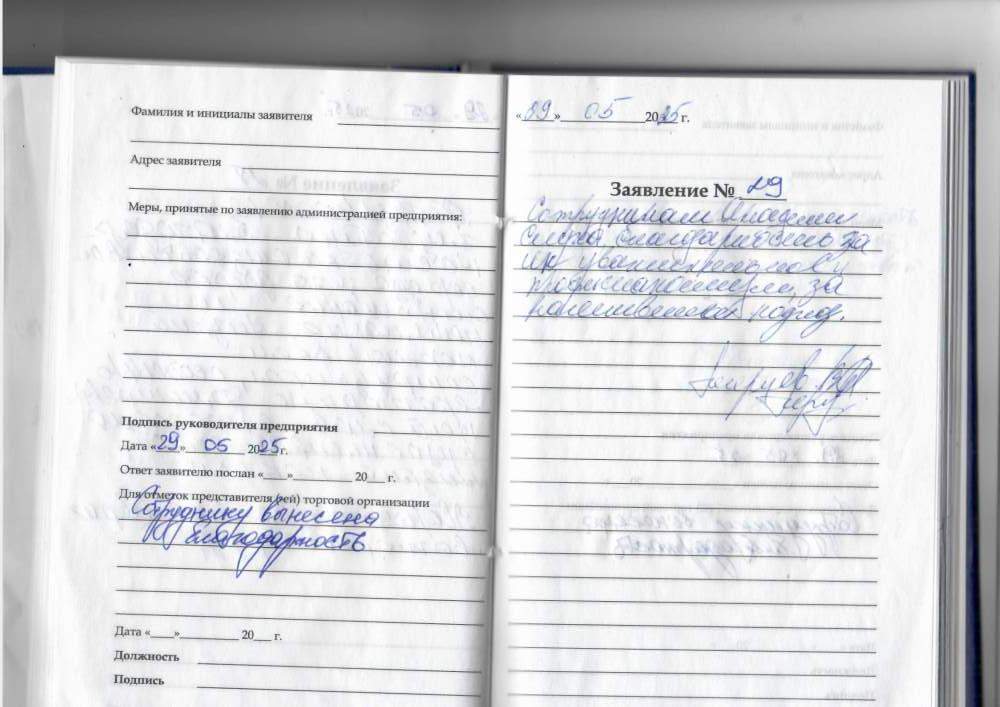 Фамилия и инициалы заявителя
Адрес заявителя
Меры, принятые по заявлению администрацией предприятия:
Подпись руководителя предприятия
Дата «29» 05 2025г.
Ответ заявителю послан «___»__________ 20___ г.
Для отметок представителя (ей) торговой организации
Сотруднику вынесена
благодарность
Дата «____»__________ 20___ г.
Должность
Подпись
«29» 05 2025 г.
Заявление № 29
Сотрудникам
благодарность за
их
за
подход.